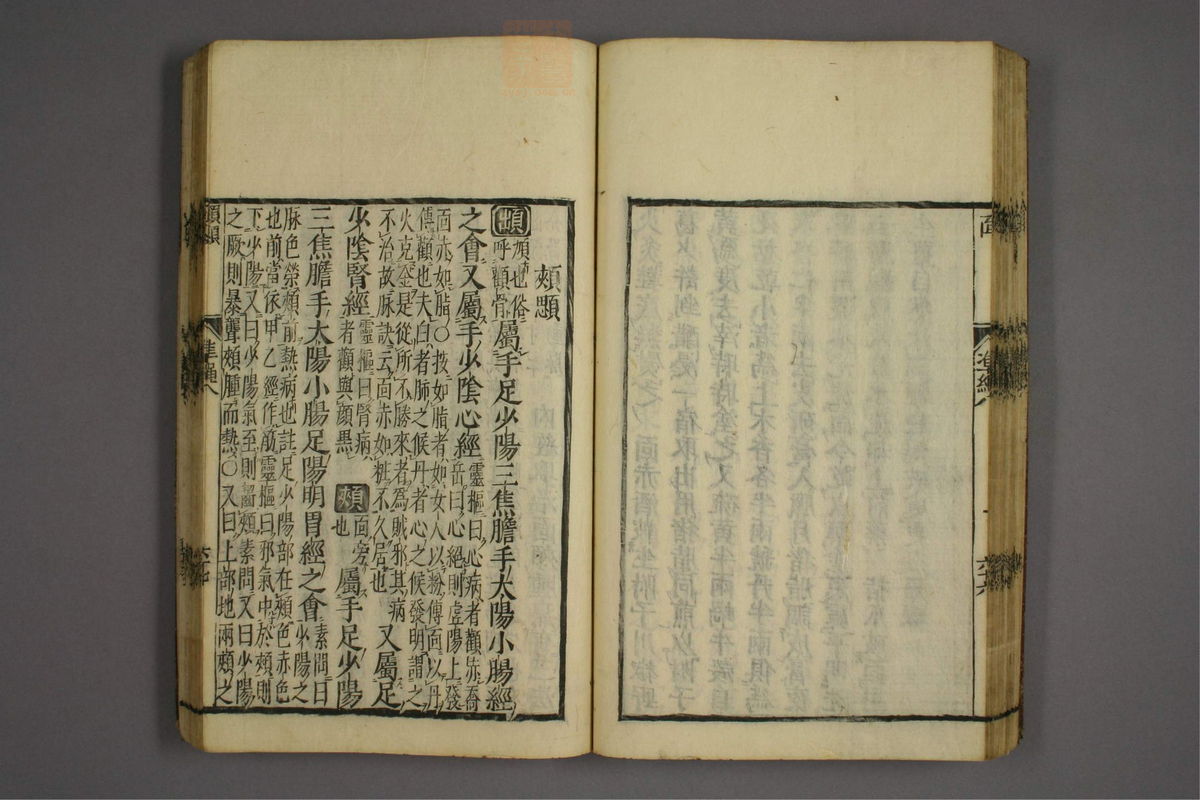 面
準繩八
頰顋
䪼頄也俗呼顴骨屬手足少陽三焦膽手太陽小腸經
之會又屬手少陰心經靈樞曰心病者顴赤喬
岳曰心絕則虛陽上發
面赤如脂○按如脂者如女人以粉傅面以丹
傅顴也夫白者肺之候丹者心之候發明謂之
火克金是從所不勝來者為賊邪其病
不治故脉訣云面赤如粧不久居也又屬足
少陰腎經靈樞曰腎病者顴與顏黑頰面旁也屬手足少陽
三焦膽手太陽小腸足陽明胃經之會素問曰少陽之
脉色榮頰前熱病也註足少陽部在頰色赤色
也前當依甲乙經作筋靈樞曰邪氣中於頰則
下少陽又曰少陽氣至則齧頰素問又曰少陽
之厥則暴聾頰腫而熱○又曰上部地兩頰之
準繩八